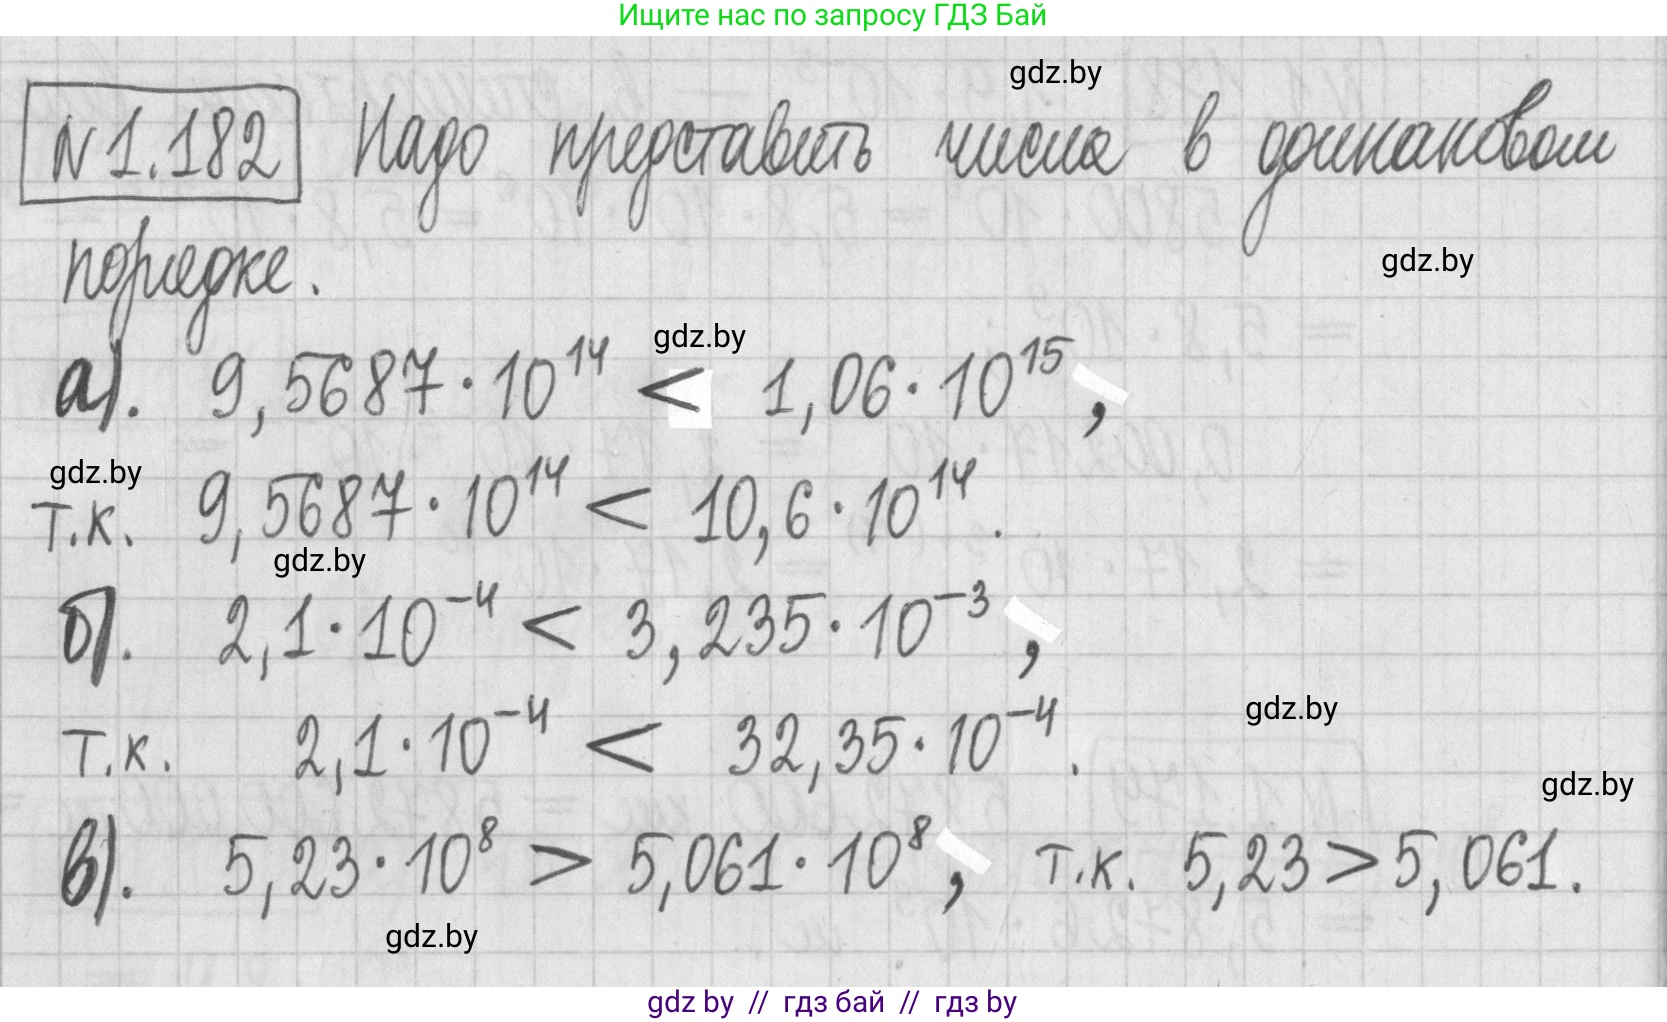 Ищите нас по запросу ГДЗ Бай
gdz.by
N 1.182 Надо представить числа в одинаковом
порядке.
gdz.by
gdz.by
а). 9,5687·10¹⁴ < 1,06·10¹⁵,
gdz.by
т.к. 9,5687·10¹⁴ < 10,6·10¹⁴.
gdz.by
б). 2,1·10⁻⁴ < 3,235·10⁻³,
gdz.by
т.к. 2,1·10⁻⁴ < 32,35·10⁻⁴.
gdz.by
в). 5,23·10⁸ > 5,061·10⁸, т.к. 5,23 > 5,061.
gdz.by
gdz by // гдз бай // гдз by